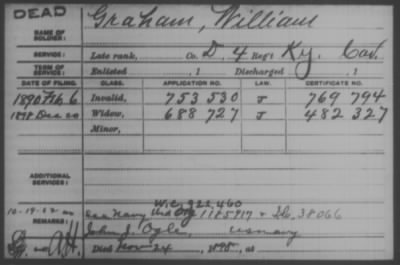 DEAD
Graham, William
NAME OF SOLDIER:
SERVICE: Late rank, Co. D, 4 Reg't Ky. Cav.
TERM OF SERVICE: Enlisted , 1 Discharged , 1
DATE OF FILING. CLASS. APPLICATION NO. LAW. CERTIFICATE NO.
1890 Feb. 6 Invalid, 753 530 J 769 794
1898 Dec 20 Widow, 688 727 J 482 327
Minor,
ADDITIONAL SERVICES:
W.C. 922,460
10-19-22 Navy Wid Org 1185917 & 38066
REMARKS: John J. Ogle, usnavy
Died Nov 24, 1895, at